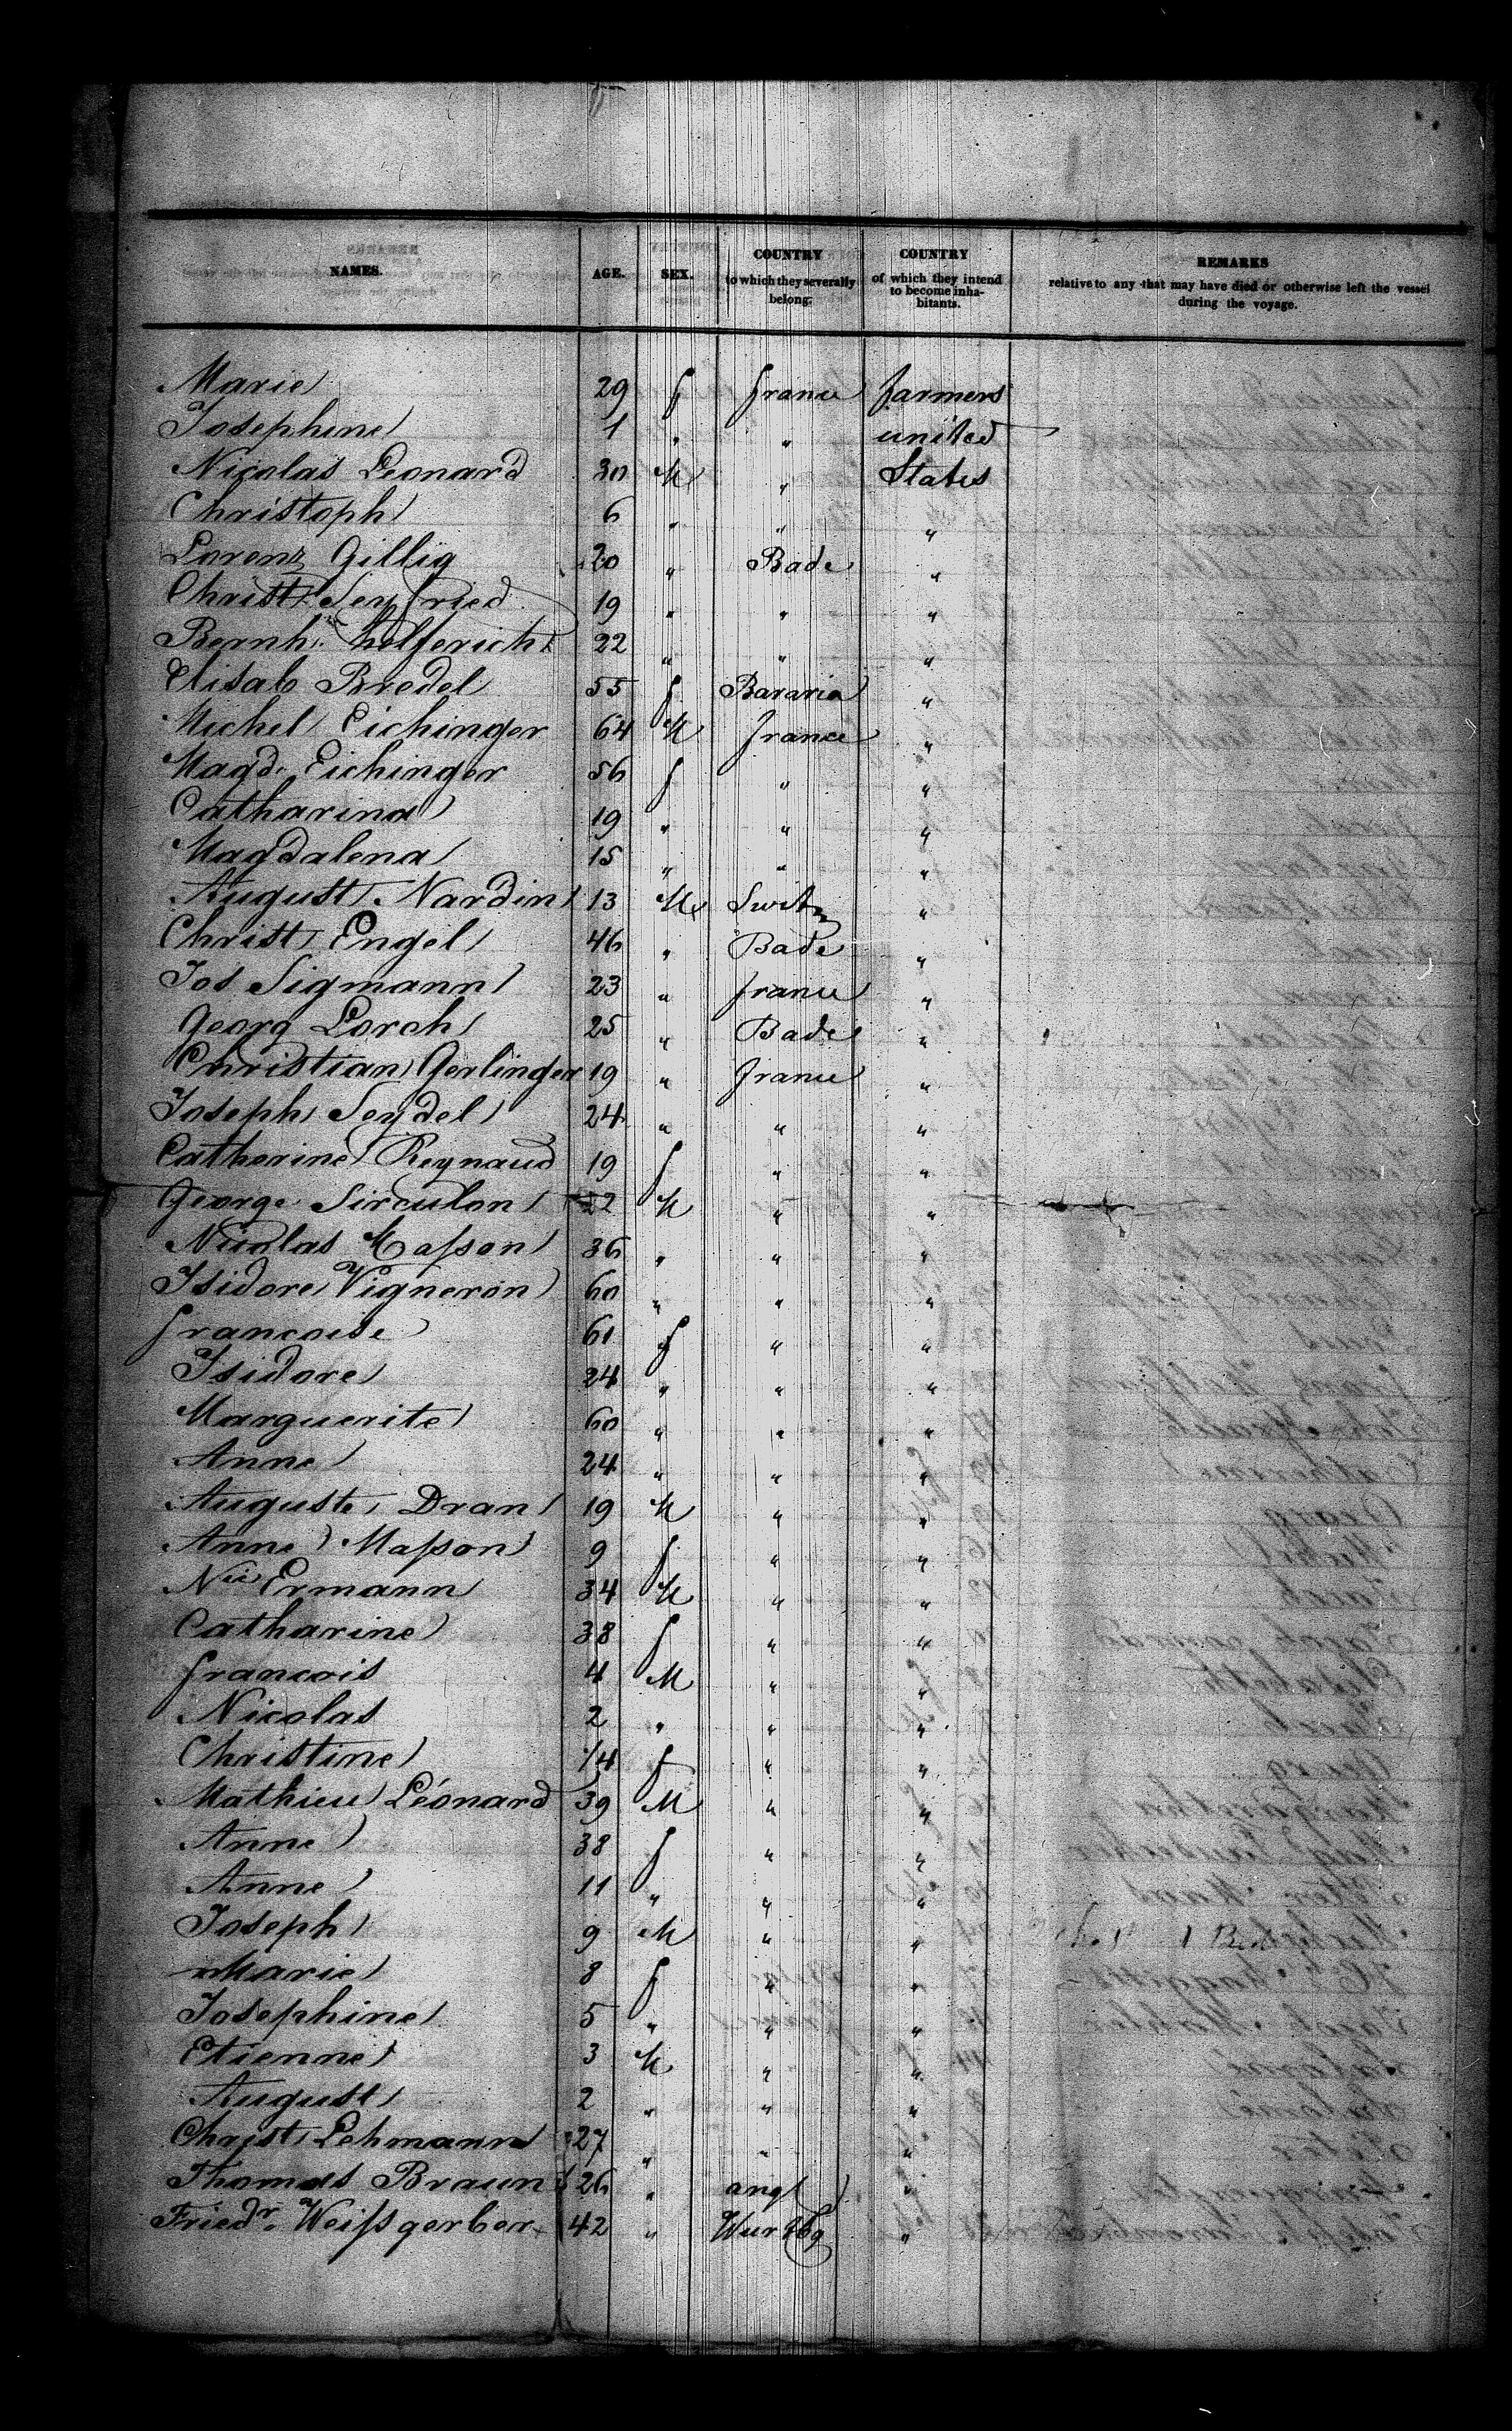 NAMES. AGE. SEX. COUNTRY to which they severally belong. COUNTRY of which they intend to become inhabitants. REMARKS relative to any that may have died or otherwise left the vessel during the voyage.
Marie 29 f france farmers
Josephine 1 " " united
Nicolas Leonard 30 M " States
Christoph 6 " " "
Lorenz Gillig 20 " Bade "
Christ. Seyfried 19 " " "
Bernh. helferich 22 " " "
Elisab Bredel 55 f Bavaria "
Michel Eichinger 64 M france "
Magd. Eichinger 56 f " "
Catharina 19 " " "
Magdalena 15 " " "
August Nardin 13 M Switz "
Christ Engel 46 " Bade "
Jos Sigmann 23 " france "
Georg Lorch 25 " Bade "
Christian Gerlinger 19 " france "
Joseph Seydel 24 " " "
Catherine Reynaud 19 f " "
George Sirculon 22 M " "
Nicolas Masson 36 " " "
Isidore Vigneron 60 " " "
francoise 61 f " "
Isidore 24 " " "
Marguerite 60 " " "
Anne 24 " " "
Auguste Dran 19 M " "
Anne Masson 9 f " "
Ermann 34 M " "
Catharine 38 f " "
francois 4 M " "
Nicolas 2 " " "
Christine 1/4 f " "
Mathieu Léonard 39 M " "
Anne 38 f " "
Anne 11 " " "
Joseph 9 M " "
Marie 8 f " "
Josephine 5 " " "
Etienne 3 M " "
August 2 " " "
Christ Lehmann 27 " " "
Thomas Braun 26 " angl "
Friedr. Weissgerber 42 " Wurtbg "